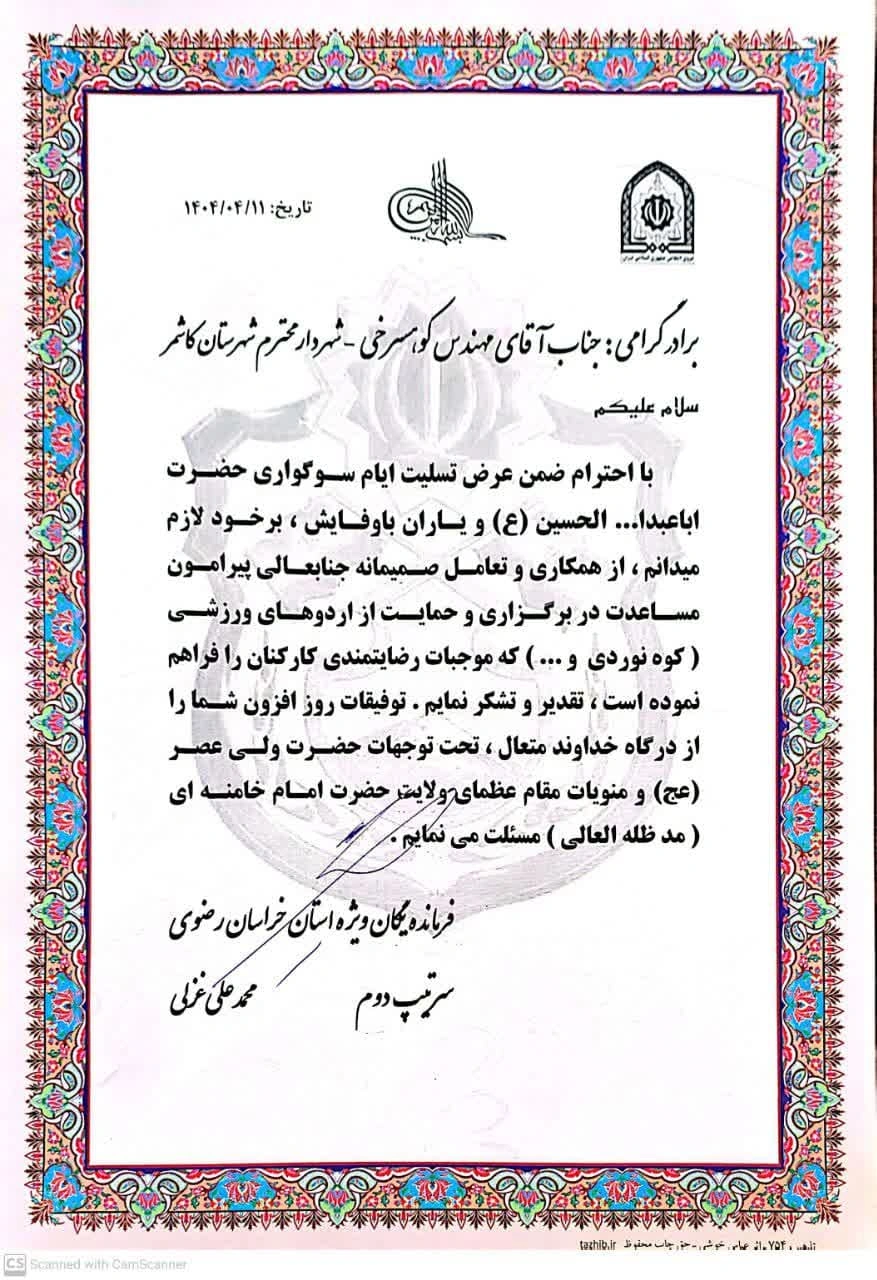 نیروی انتظامی جمهوری اسلامی ایران
تاریخ: ۱۴۰۴/۰۴/۱۱
برادر گرامی: جناب آقای مهندس کوهسرخی - شهردار محترم شهرستان کاشمر
سلام علیکم
با احترام ضمن عرض تسلیت ایام سوگواری حضرت
اباعبدا... الحسین (ع) و یاران باوفایش ، برخود لازم
میدانم ، از همکاری و تعامل صمیمانه جنابعالی پیرامون
مساعدت در برگزاری و حمایت از اردوهای ورزشی
( کوه نوردی و ... ) که موجبات رضایتمندی کارکنان را فراهم
نموده است ، تقدیر و تشکر نمایم . توفیقات روز افزون شما را
از درگاه خداوند متعال ، تحت توجهات حضرت ولی عصر
(عج) و منویات مقام عظمای ولایت حضرت امام خامنه ای
( مد ظله العالی ) مسئلت می نمایم .
فرمانده یگان ویژه استان خراسان رضوی
سرتیپ دوم محمد علی غزلی
عباس خوشی - حق چاپ محفوظ tazhib.ir
CS Scanned with CamScanner